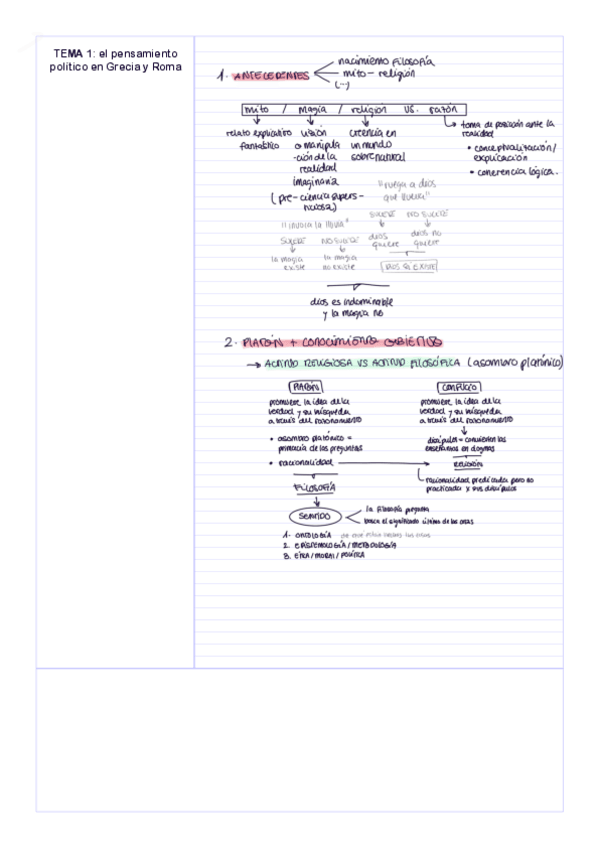 TEMA 1: el pensamiento
político en Grecia y Roma
1. ANTECEDENTES
nacimiento filosofía
mito - religión
(...)
mito / magia / religion vs. razón
relato explicativo
fantástico
visión
o manipula
-ción de la
realidad
imaginaria
(pre-ciencia supers-
ticiosa)
creencia en
un mundo
sobrenatural
toma de posición ante la
realidad
• conceptualización /
explicación
• coherencia lógica.
"ruega a dios
que llueva"
SUCEDE NO SUCEDE
dios
quiere
dios no
quiere
DIOS SÍ EXISTE
"invoca la lluvia"
SUCEDE NO SUCEDE
la magia
existe
la magia
no existe
dios es indominable
y la magia no
2. PLATÓN + CONOCIMIENTO OBJETIVO
→ ACTITUD RELIGIOSA VS ACTITUD FILOSÓFICA (asombro platónico)
PLATÓN
promueve la idea de la
verdad y su búsqueda
a través del razonamiento
• asombro platónico =
primacía de las preguntas
• racionalidad
FILOSOFÍA
SENTIDO
la filosofía pregunta
busca el significado último de las cosas
1. ONTOLOGÍA
2. EPISTEMOLOGÍA / METODOLOGÍA
3. ÉTICA / MORAL / POLÍTICA
CONFUCIO
promueve la idea de la
verdad y su búsqueda
a través del razonamiento
discípulos = convierten las
enseñanzas en dogmas
RELIGIÓN
racionalidad predicada pero no
practicada x sus discípulos